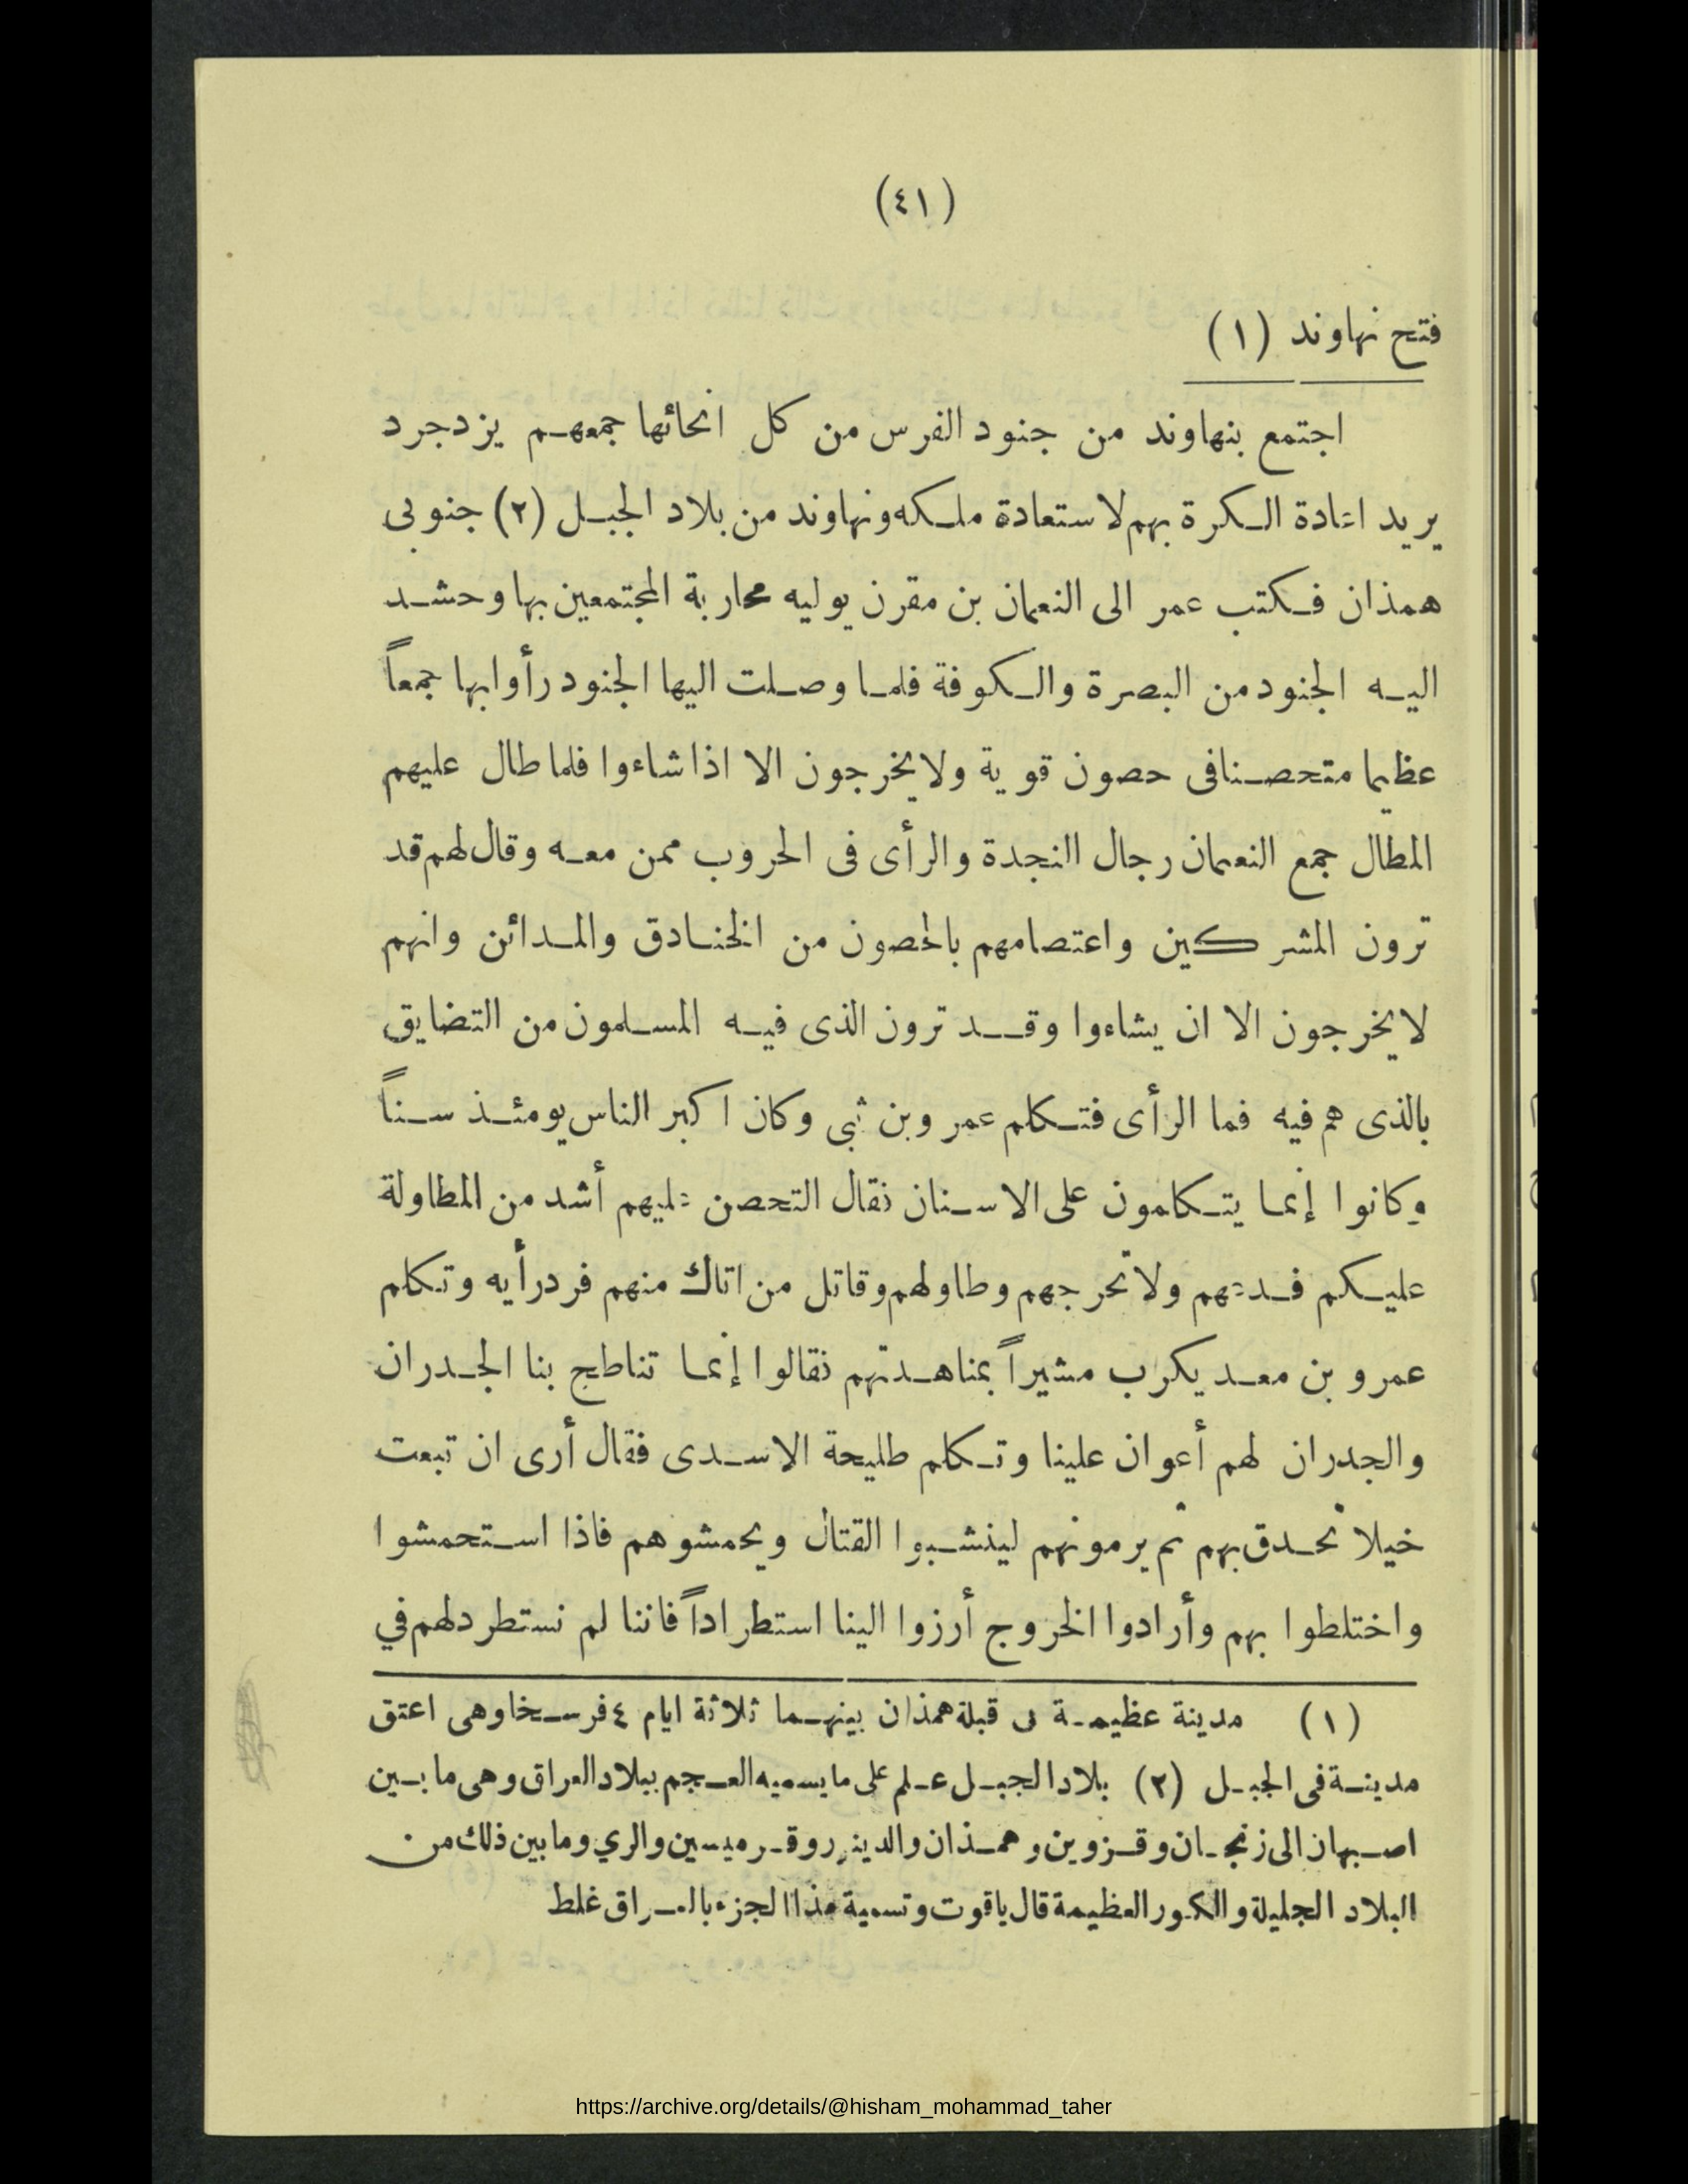 (٤١)
فتح نهاوند (١)
اجتمع بنهاوند من جنود الفرس من كل انحائها جمعهم يزدجرد
يريد اعادة الكرة بهم لاستعادة ملكه ونهاوند من بلاد الجبل (٢) جنوبى
همذان فكتب عمر الى النعمان بن مقرن يوليه محاربة المجتمعين بها وحشد
اليه الجنود من البصرة والكوفة فلما وصلت اليها الجنود رأوا بها جمعاً
عظيما متحصنا فى حصون قوية ولا يخرجون الا اذا شاءوا فلما طال عليهم
المطال جمع النعمان رجال النجدة والرأى فى الحروب ممن معه وقال لهم قد
ترون المشركين واعتصامهم بالحصون من الخنادق والمدائن وانهم
لا يخرجون الا ان يشاءوا وقد ترون الذى فيه المسلمون من التضايق
بالذى هم فيه فما الرأى فتكلم عمرو بن ثبى وكان اكبر الناس يومئذ سناً
وكانوا إنما يتكلمون على الاسنان فقال التحصن عليهم أشد من المطاولة
عليكم فدعهم ولا تحرجهم وطاولهم وقاتل من اتاك منهم فرد رأيه وتكلم
عمرو بن معد يكرب مشيراً بمناهدتهم فقالوا إنما تناطح بنا الجدران
والجدران لهم أعوان علينا وتكلم طليحة الاسدى فقال أرى ان تبعت
خيلا تحدق بهم ثم يرمونهم لينشبوا القتال ويحمشوهم فاذا استحمشوا
واختلطوا بهم وأرادوا الخروج أرزوا الينا استطراداً فاننا لم نستطرد لهم في
(١) مدينة عظيمة فى قبلة همذان بينهما ثلاثة ايام ٤ فرسخا وهى اعتق
مدينة فى الجبل (٢) بلاد الجبل علم على ما يسميه العجم ببلاد العراق وهى ما بين
اصبهان الى زنجان وقزوين وهمذان والدينور وقرميسين والري وما بين ذلك من
البلاد الجليلة والكور العظيمة قال ياقوت وتسمية هذا الجزء بالعراق غلط
https://archive.org/details/@hisham_mohammad_taher